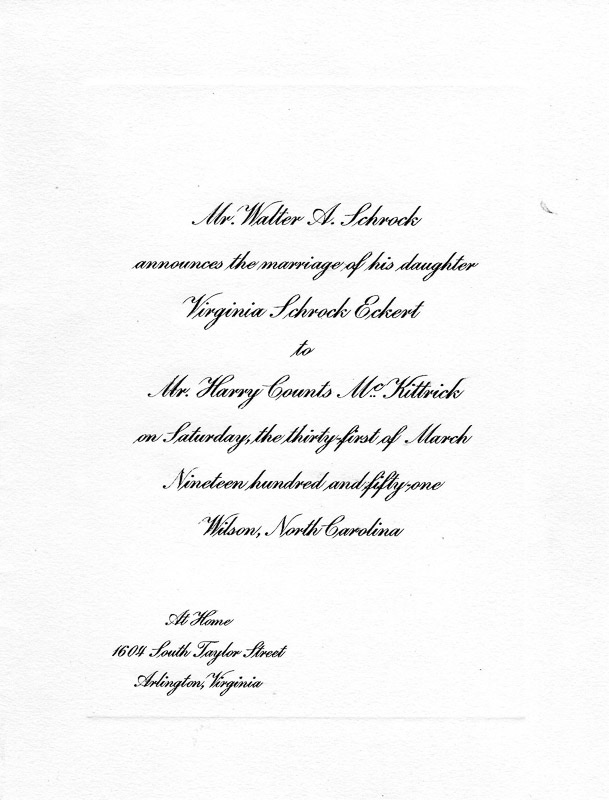 Mr. Walter A. Schrock
announces the marriage of his daughter
Virginia Schrock Eckert
to
Mr. Harry Counts Mc. Kittrick
on Saturday, the thirty-first of March
Nineteen hundred and fifty-one
Wilson, North Carolina
At Home
1604 South Taylor Street
Arlington, Virginia